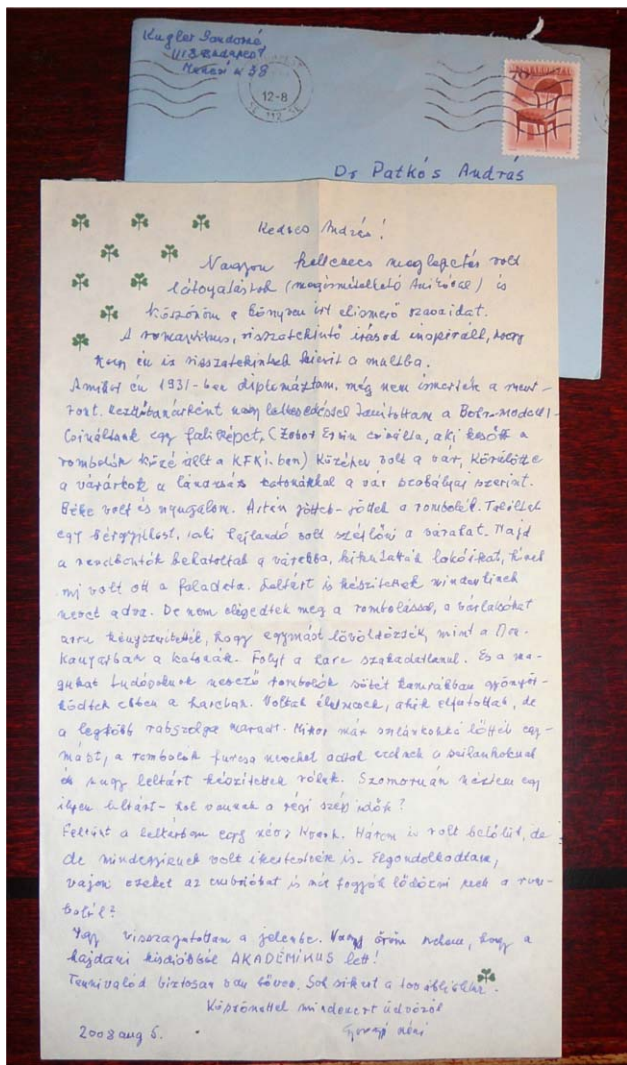 Kugler Sándorné
1113 Budapest
12-8
70
Dr Patkós András
Kedves András!
Nagyon kellemes meglepetés volt
látogatástok (megismételhető Anikóval) is
Köszönöm a könyvem írt elismerő szavaidat.
A romantikus, visszatekintő írásod inspirált, hogy
én is visszatekintsek kicsit a multba.
Amikor én 1931-ben diplomáztam, még nem ismerték a neut-
ront. Kezdő tanárként nagy lelkesedéssel tanítottam a Bohr-modellt
Csináltunk egy faliképet, (Zobor Ervin csinálta, aki később a
rombolók közé állt a KFKI-ban) Középen volt a vár, Körülötte
a várárkok a katonákkal a vár szabályai szerint.
Béke volt és nyugalom. Aztán jöttek-jöttek a rombolók. Találtak
egy bérgyilkost, aki hajlandó volt szétlőni a várat. Majd
a rendbontók behatoltak a várakba, lakóikat, kinek
mi volt ott a feladata. Leltárt is készítettek mindenkinek
nevet adva. De nem elégedtek meg a rombolással, a várlakókat
arra kényszerítették, hogy egymást lövöldözzék, mint a
katonák. Folyt a harc szakadatlanul. És a ma-
gukat tudósoknak nevező rombolók sötét kamrákban gyönyör-
ködtek ebben a harcban. Voltak akik elfutottak, de
a legtöbb rabszolga maradt. Mikor már szilánkokká lőtték egy-
mást, a rombolók furcsa neveket adtak ezeknek a szilánkoknak
és nagy leltárt készítettek róluk. Szomorúan néztem egy
ilyen leltárt - hol vannak a régi szép idők?
Feltűnt a leltárban egy név: Kvark. Három is volt belőlük, de
de mindegyiknek volt ikertestvére is. Elgondolkodtam,
vajon ezeket az embriókat is szét fogják lődözni ezek a rom-
bolók?
Így visszajutottam a jelenbe. Nagy öröm nekem, hogy a
hajdani kisdiákból AKADÉMIKUS lett!
Tennivalód biztosan van bőven. Sok sikert a továbbiakhoz.
Köszönettel mindezért üdvözöl
2008 aug 5. néni